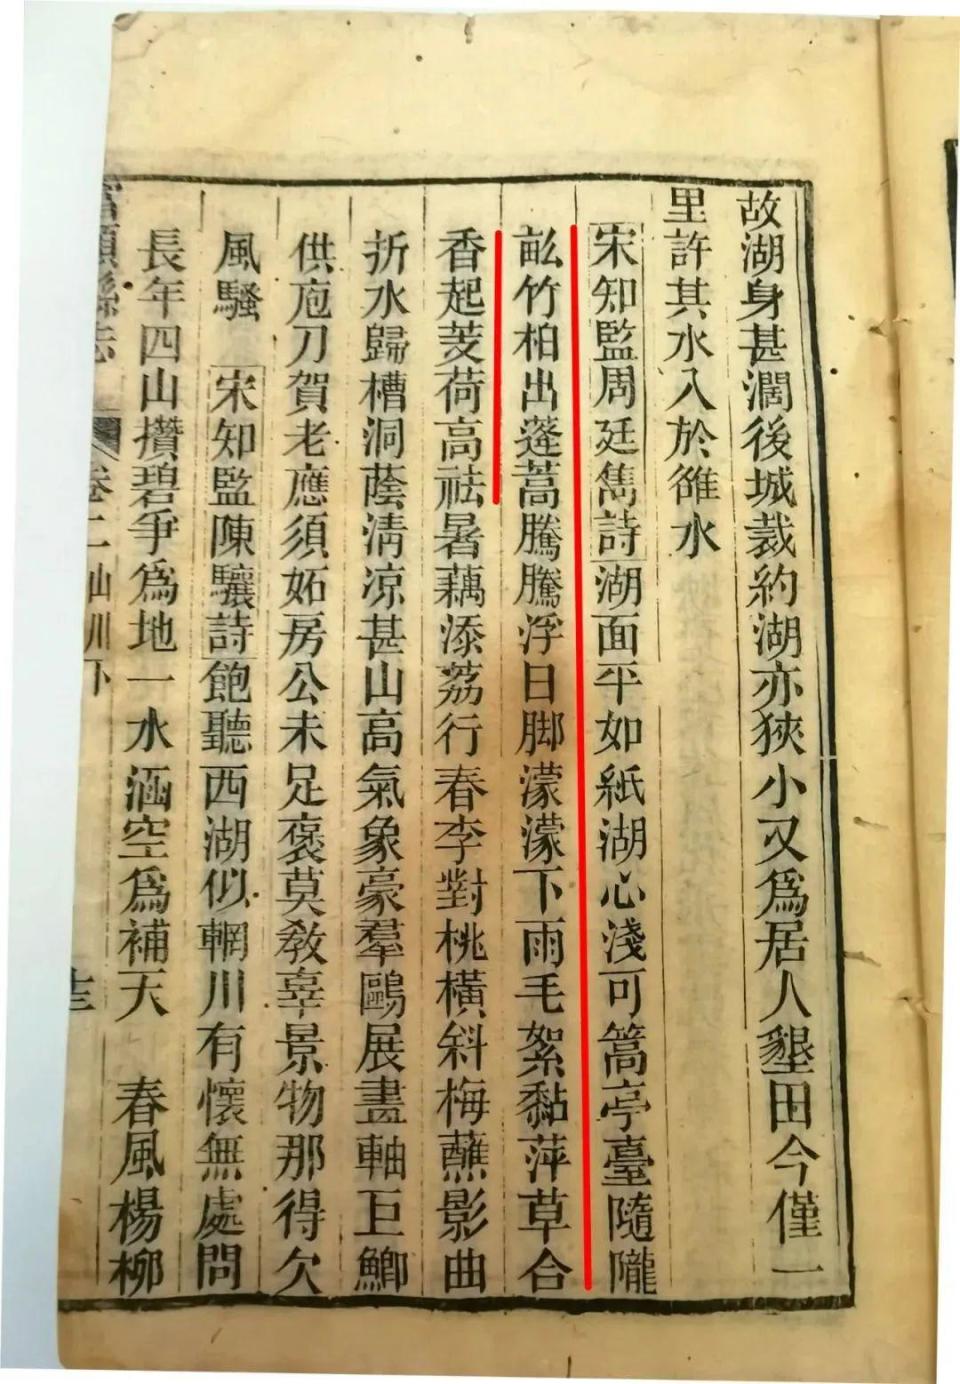 故湖身甚濶後城裁約湖亦狹小又為居人墾田今僅一
里許其水入於雒水
宋知監周廷雋詩湖面平如紙湖心淺可篙亭臺隨隴
畝竹柏出蓬蒿騰騰浮日脚濛濛下雨毛絮黏萍草合
香起芰荷高祛暑藕添荔行春李對桃橫斜梅蘸影曲
折水歸槽洞蔭清凉甚山高氣象豪羣鷗展畫軸巨鯽
供庖刀賀老應須妬房公未足褒莫教辜景物那得欠
風騷 宋知監陳驤詩飽聽西湖似輞川有懷無處問
長年四山攢碧爭為地一水涵空為補天 春風楊柳
富順縣志 卷二山川下 十三